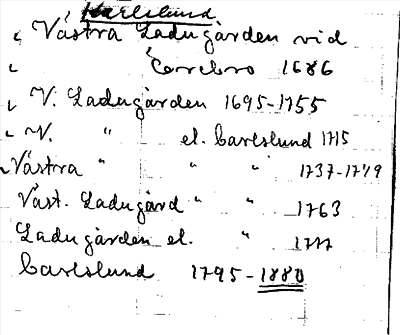 Karlslund.
Västra Ladugården vid
Örebro 1686
V. Ladugården 1695-1755
V. " el. Carlslund 1715
Västra " " " 1737-1749
Väst. Ladugård " " 1763
Ladugården el. " 1777
Carlslund 1795-1880